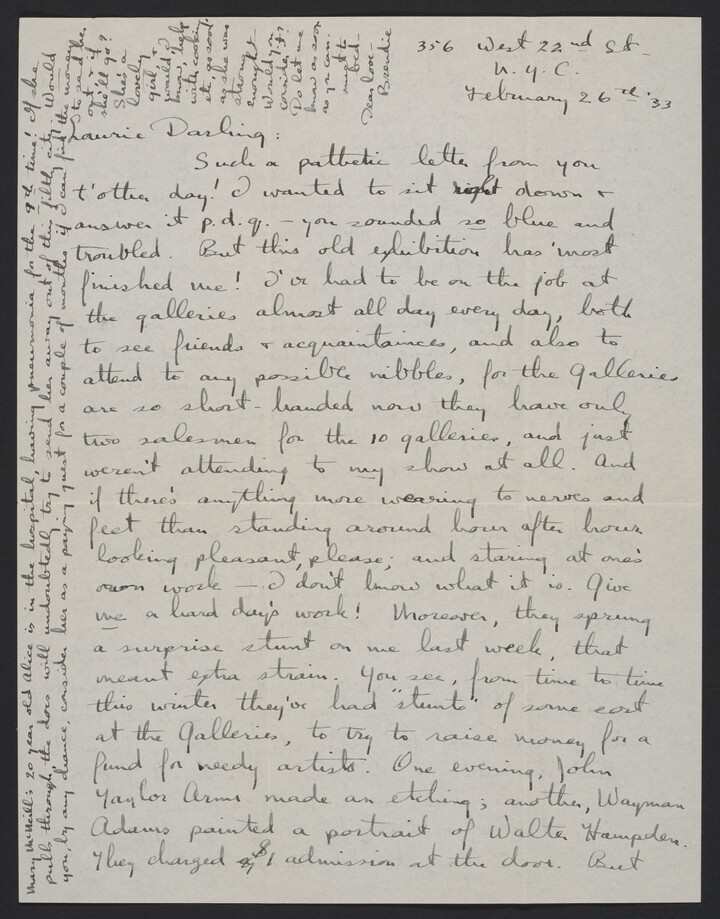 356 West 22nd St.
N.Y.C.
February 26th '33
Laurie Darling:
Such a pathetic letter from you
t'other day! I wanted to sit right down &
answer it p.d.q. – you sounded so blue and
troubled. But this old exhibition has 'most
finished me! I've had to be on the job at
the galleries almost all day every day, both
to see friends & acquaintainces, and also to
attend to any possible nibbles, for the Galleries
are so short-handed now they have only
two salesmen for the 10 galleries, and just
weren't attending to my show at all. And
if there's anything more wearing to nerves and
feet than standing around hour after hour
looking pleasant, please; and staring at one's
own work – I don't know what it is. Give
me a hard day's work! Moreover, they sprung
a surprise stunt on me last week, that
meant extra strain. You see, from time to time
this winter they've had "stunts" of some sort
at the Galleries, to try to raise money for a
fund for needy artists. One evening, John
Taylor Arms made an etching; another, Wayman
Adams painted a portrait of Walter Hampden.
They charged $1 admission at the door. But
Mary McNeill's 20 year old Alice is in the hospital, having pneumonia for the 9th time! If she
pulls through, the docs will undoubtedly try to send her away out of this filthy city. Would
you, by any chance, consider her as a paying guest for a couple of months if I can find the money
to send her
out & if
she'll go?
She's a
lovely
girl &
would, I
know, help
with cooking
etc, as soon
as she was
strong
enough.
Would you
consider it?
Do let me
know as soon
as you can.
must to
bed –
Dear love –
Brendie